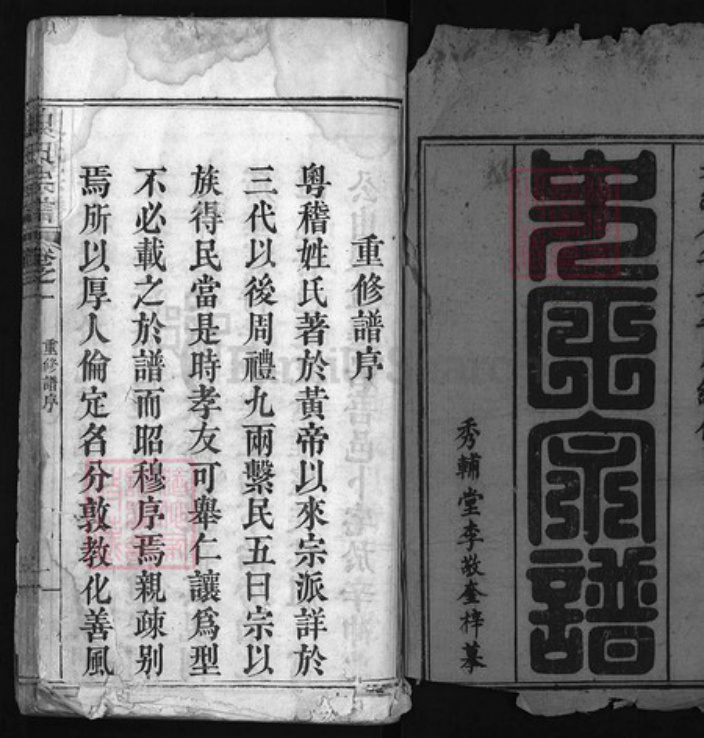 氏宗譜
秀輔堂李敬奎梓摹
重修譜序
粤稽姓氏著於黃帝以來宗派詳於
三代以後周禮九兩繫民五曰宗以
族得民當是時孝友可舉仁讓爲型
不必載之於譜而昭穆序焉親疎别
焉所以厚人倫定名分敦教化善風
宗譜
卷之一
重修譜序